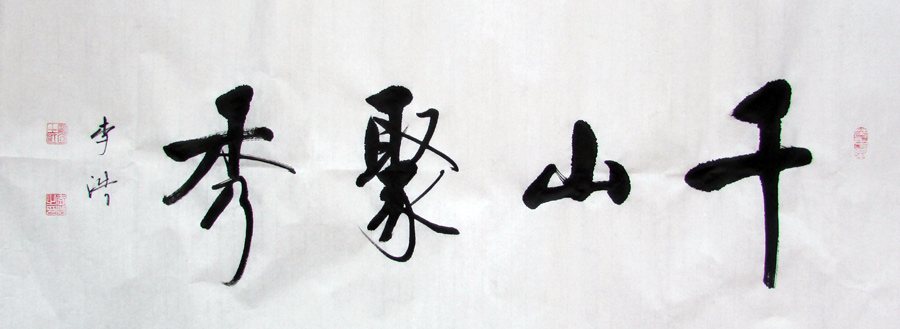 千山聚秀
李鸿